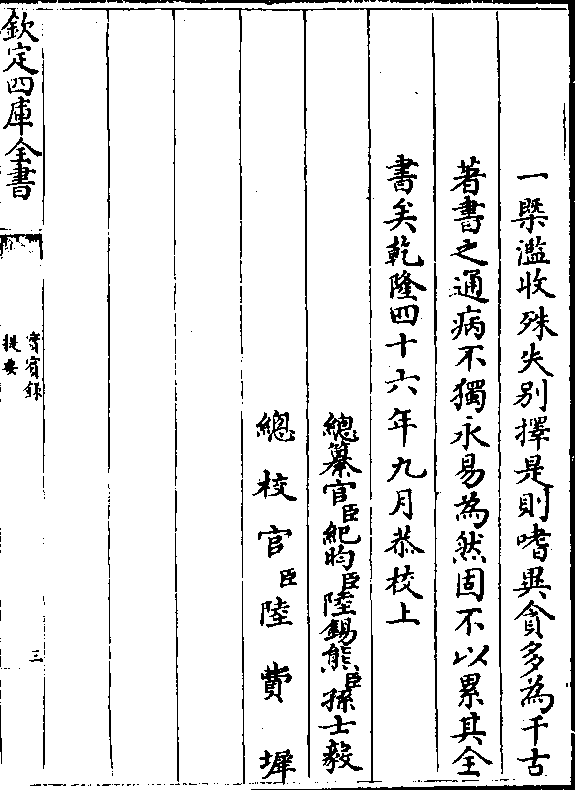 一槩濫收殊失别擇是則嗜異貪多為千古
著書之通病不獨永易為然固不以累其全
書矣乾隆四十六年九月恭校上
總纂官臣紀昀臣陸錫熊臣孫士毅
總校官臣陸費墀
欽定四庫全書
實賓録
提要
三